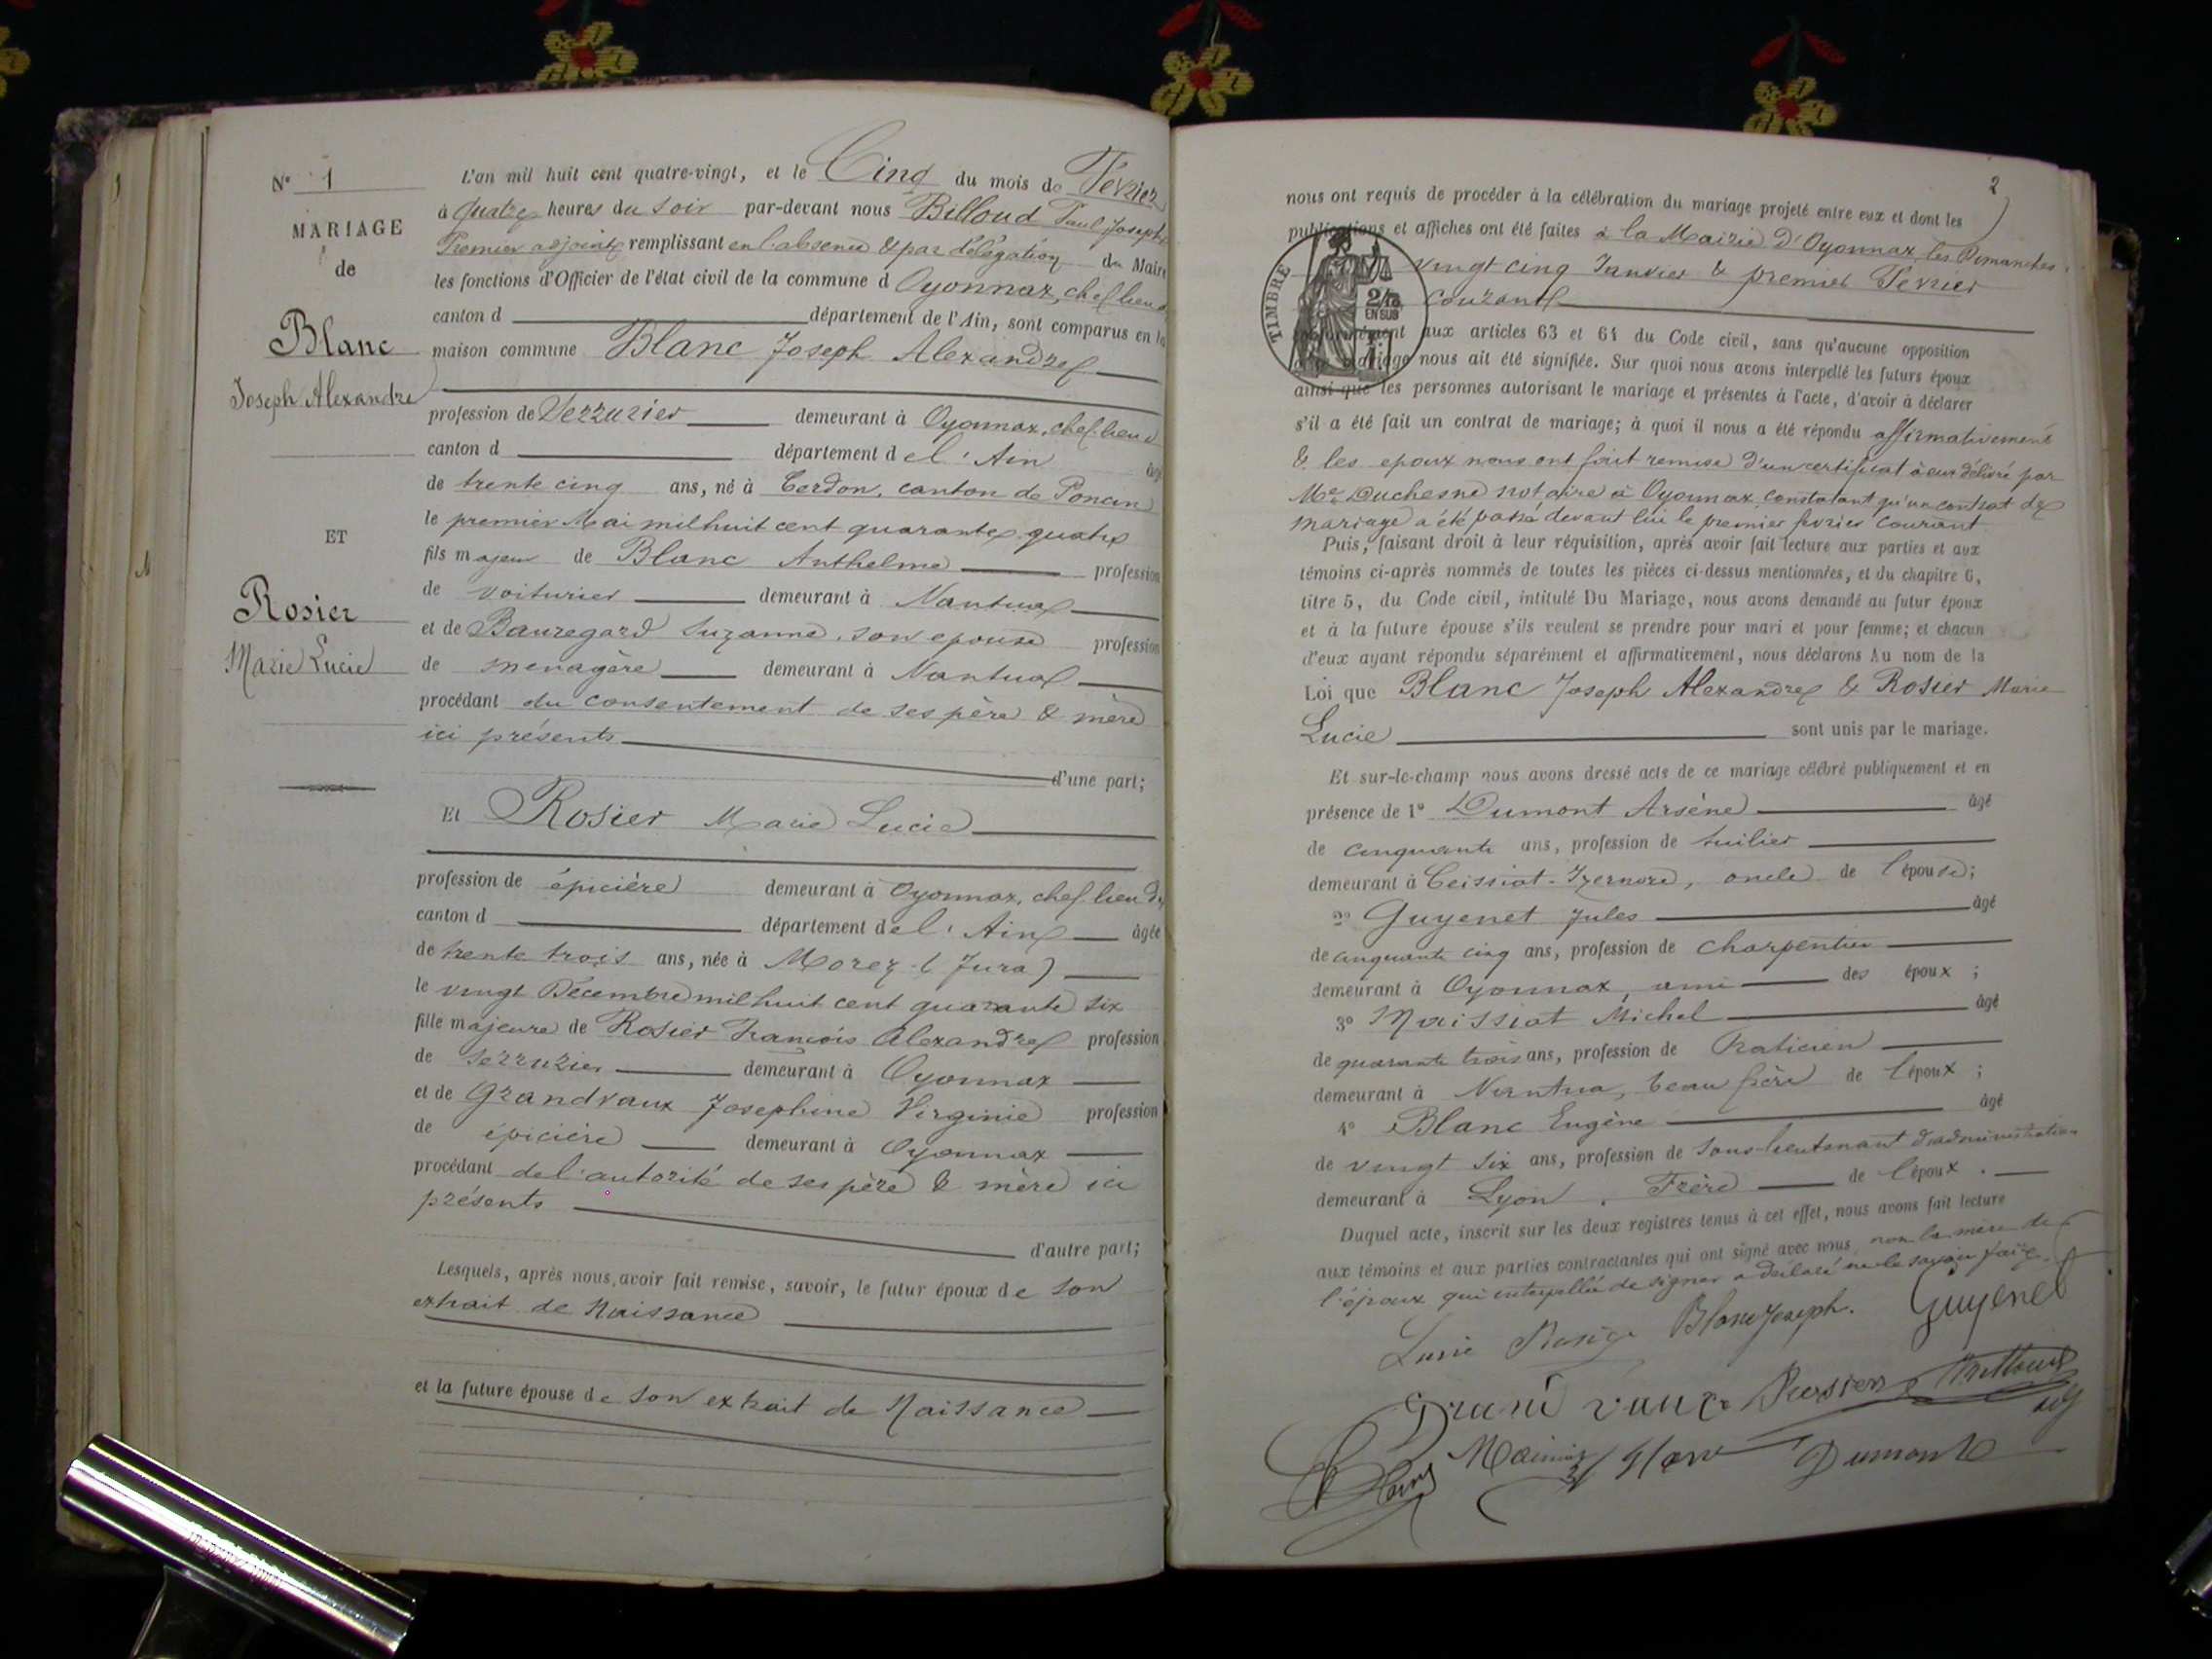 N° 1
MARIAGE
de
Blanc
Joseph Alexandre
ET
Rosier
Marie Lucie
L'an mil huit cent quatre-vingt, et le Cinq du mois de Fevrier
à quatre heures du soir par-devant nous Billoud Paul Joseph
Premier adjoint remplissant en l'absence & par délégation du Maire
les fonctions d'Officier de l'état civil de la commune d Oyonnax, chef lieu d
canton d département de l'Ain, sont comparus en la
maison commune Blanc Joseph Alexandre
profession de Serrurier demeurant à Oyonnax, chef lieu d
canton d département de l'Ain âgé
de trente cinq ans, né à Cerdon, canton de Poncin
le premier Mai mil huit cent quarante quatre
fils majeur de Blanc Anthelme profession
de voiturier demeurant à Nantua
et de Bauregard Suzanne, son epouse profession
de menagère demeurant à Nantua
procédant du consentement de ses père & mère
ici présents
d'une part;
Et Rosier Marie Lucie
profession de épicière demeurant à Oyonnax, chef lieu de
canton d département de l'Ain âgée
de trente trois ans, née à Morez (Jura)
le vingt Décembre mil huit cent quarante six
fille majeure de Rosier François Alexandre profession
de serrurier demeurant à Oyonnax
et de Grandvaux Josephine Virginie profession
de épicière demeurant à Oyonnax
procédant de l'autorité de ses père & mère ici
présents
d'autre part;
Lesquels, après nous avoir fait remise, savoir, le futur époux de son
extrait de Naissance
et la future épouse de son extrait de Naissance
2
nous ont requis de procéder à la célébration du mariage projeté entre eux et dont les
publications et affiches ont été faites à la Mairie d'Oyonnax les Dimanches
vingt cinq Janvier & premier Fevrier
courant
TIMBRE
EN SUS
conformément aux articles 63 et 64 du Code civil, sans qu'aucune opposition
mariage nous ait été signifiée. Sur quoi nous avons interpellé les futurs époux
ainsi que les personnes autorisant le mariage et présentes à l'acte, d'avoir à déclarer
s'il a été fait un contrat de mariage; à quoi il nous a été répondu affirmativement
& les epoux nous ont fait remise d'un certificat à eux délivré par
Me Duchesne notaire à Oyonnax, constatant qu'un contrat de
mariage a été passé devant lui le premier fevrier courant
Puis, faisant droit à leur réquisition, après avoir fait lecture aux parties et aux
témoins ci-après nommés de toutes les pièces ci-dessus mentionnées, et du chapitre 6,
titre 5, du Code civil, intitulé Du Mariage, nous avons demandé au futur époux
et à la future épouse s'ils veulent se prendre pour mari et pour femme; et chacun
d'eux ayant répondu séparément et affirmativement, nous déclarons Au nom de la
Loi que Blanc Joseph Alexandre & Rosier Marie
Lucie sont unis par le mariage.
Et sur-le-champ nous avons dressé acte de ce mariage célébré publiquement et en
présence de 1° Dumont Arsène âgé
de cinquante ans, profession de huilier
demeurant à Ceissiat-Izernore, oncle de l'épouse;
2° Guyenet Jules âgé
de cinquante cinq ans, profession de charpentier
demeurant à Oyonnax, ami des époux;
3° Maissiat Michel âgé
de quarante trois ans, profession de Praticien
demeurant à Nantua, beau frère de l'époux;
4° Blanc Eugène âgé
de vingt six ans, profession de sous-lieutenant d'administration
demeurant à Lyon, Frère de l'époux.
Duquel acte, inscrit sur les deux registres tenus à cet effet, nous avons fait lecture
aux témoins et aux parties contractantes qui ont signé avec nous, non la mère de
l'époux qui interpellée de signer a déclaré ne le savoir faire.
Lucie Rosier Blanc Joseph. Guyenet
Grand vaux Billoud
Dumont